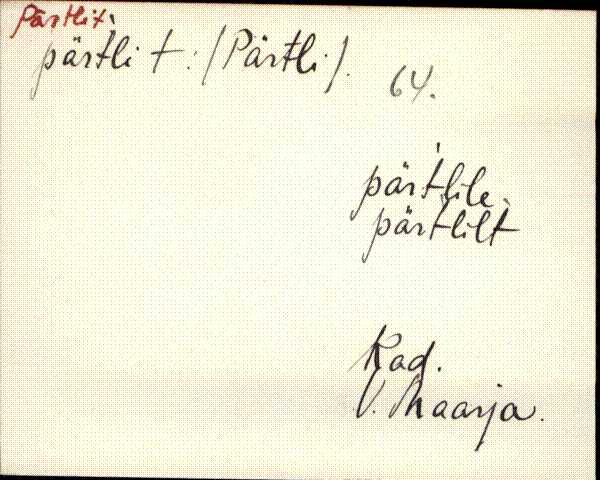 Pärtlit
pärtli t : (Pärtli).
64.
pärtlile
pärtlilt
Kad.
V. Maarja.